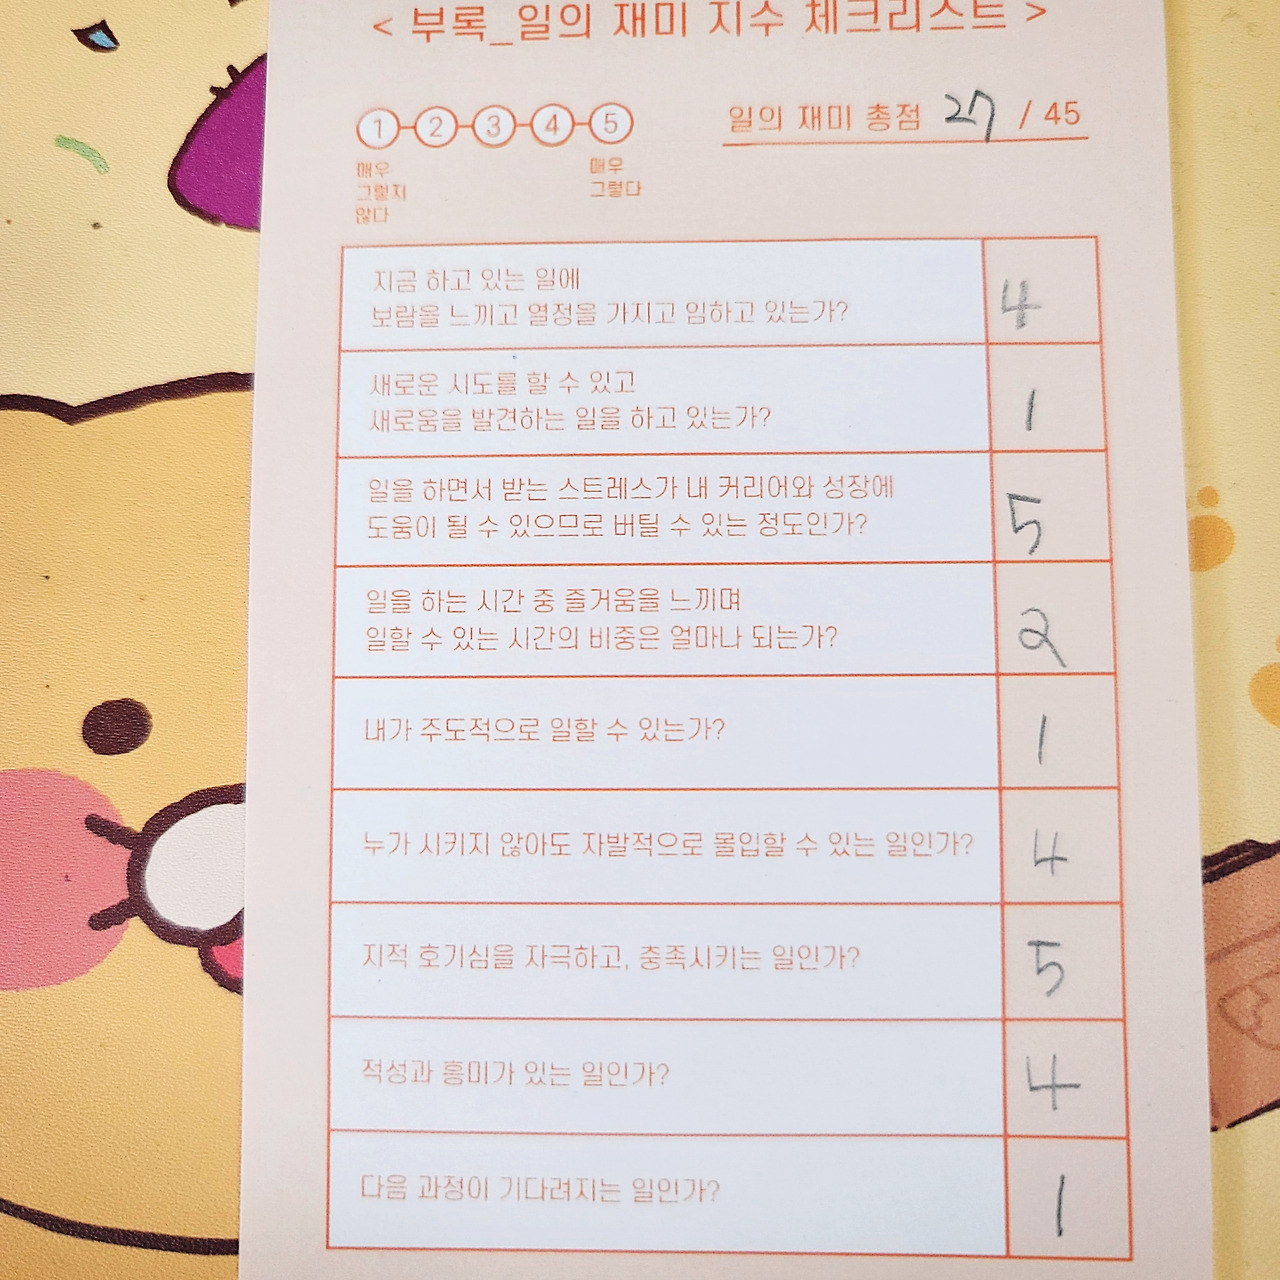 < 부록_일의 재미 지수 체크리스트 >
1 2 3 4 5
일의 재미 총점 27 / 45
매우
그렇지
않다
매우
그렇다
지금 하고 있는 일에
보람을 느끼고 열정을 가지고 임하고 있는가?
4
새로운 시도를 할 수 있고
새로움을 발견하는 일을 하고 있는가?
1
일을 하면서 받는 스트레스가 내 커리어와 성장에
도움이 될 수 있으므로 버틸 수 있는 정도인가?
5
일을 하는 시간 중 즐거움을 느끼며
일할 수 있는 시간의 비중은 얼마나 되는가?
2
내가 주도적으로 일할 수 있는가?
1
누가 시키지 않아도 자발적으로 몰입할 수 있는 일인가?
4
지적 호기심을 자극하고, 충족시키는 일인가?
5
적성과 흥미가 있는 일인가?
4
다음 과정이 기다려지는 일인가?
1